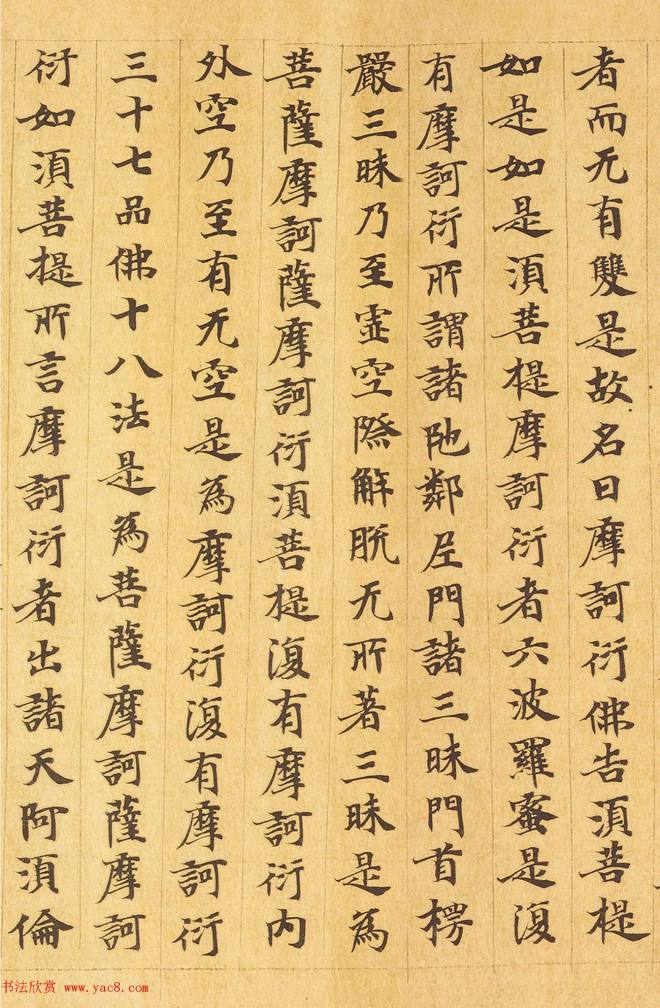 者而无有雙是故名曰摩訶衍佛告須菩提
如是如是須菩提摩訶衍者六波羅蜜是復
有摩訶衍所謂諸陁鄰尼門諸三昧門首楞
嚴三昧乃至虛空際解脫无所著三昧是為
菩薩摩訶薩摩訶衍須菩提復有摩訶衍內
外空乃至有无空是為摩訶衍復有摩訶衍
三十七品佛十八法是為菩薩摩訶薩摩訶
衍如須菩提所言摩訶衍者出諸天阿須倫
书法欣赏 www.yac8.com